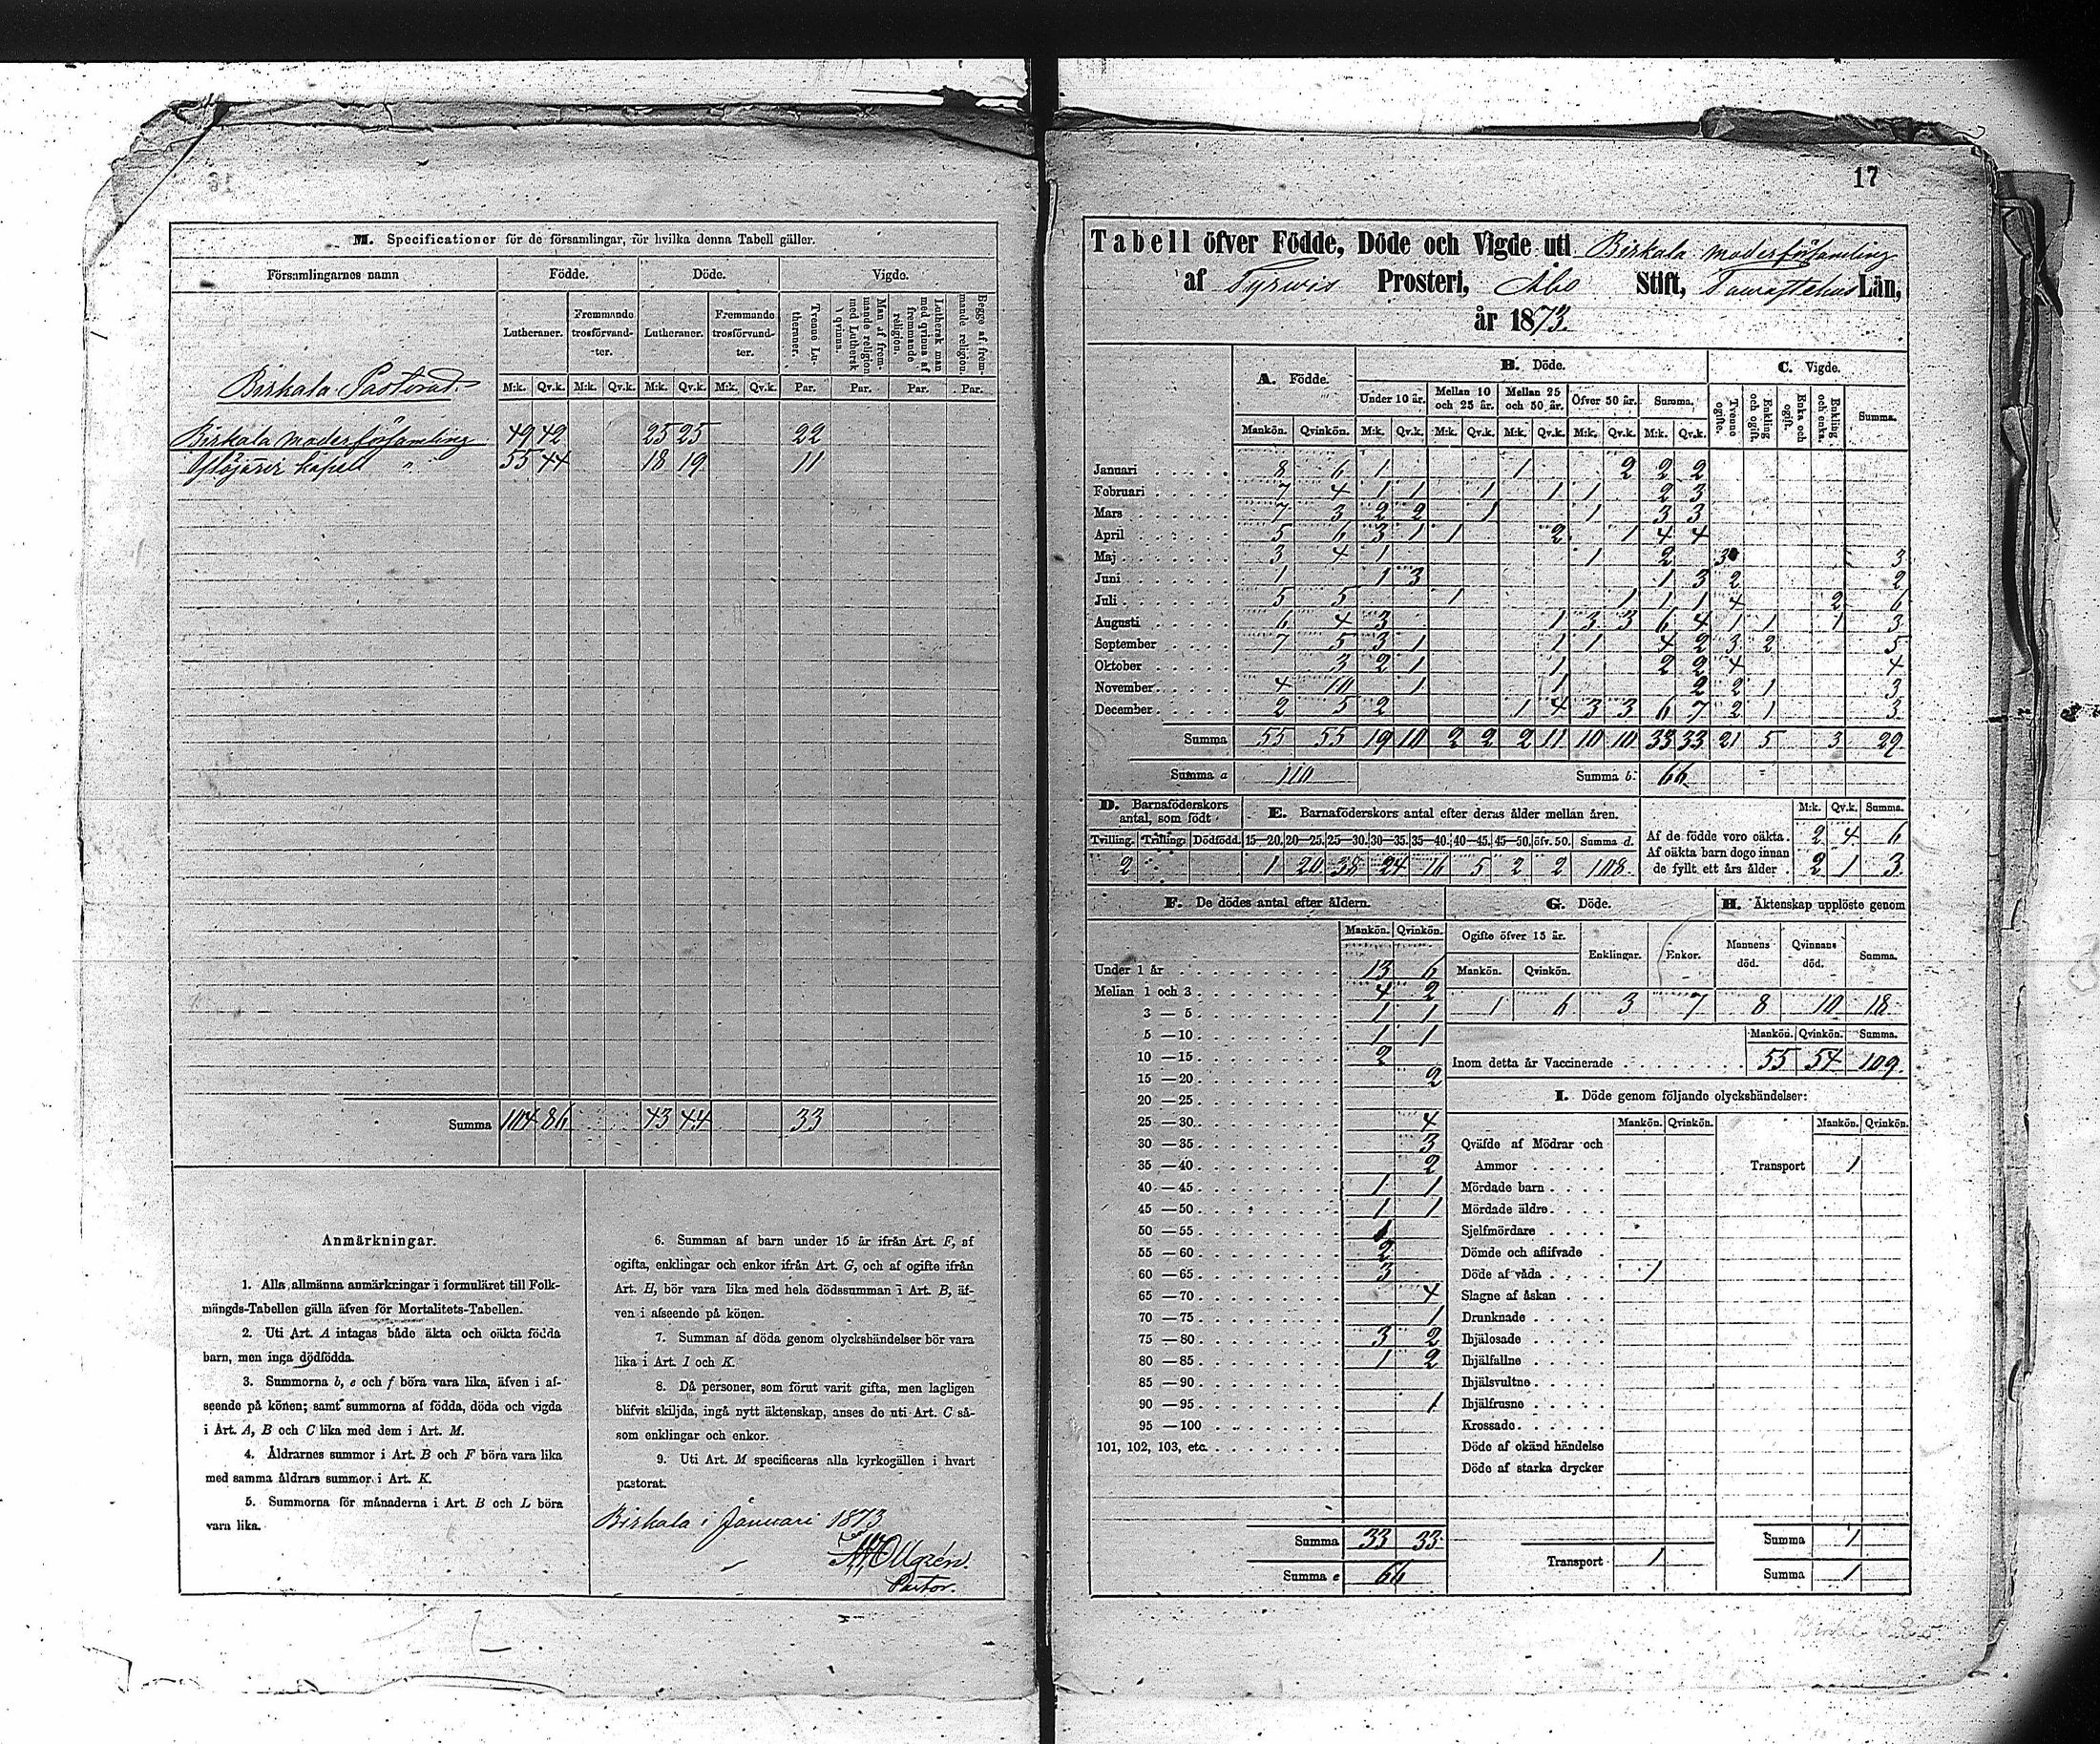 M. Specificationer för de församlingar, för hvilka denna Tabell gäller.
Församlingarnes namn Födde. Döde. Vigde.
Lutheraner. Fremmande trosförvandter. Lutheraner. Fremmande trosförvandter. Tvenne Lutheraner. Man af fremmande religion med Luthersk qvinna. Luthersk man med qvinna af fremmande religion. Begge af fremmande religion.
M:k. Qv.k. M:k. Qv.k. M:k. Qv.k. M:k. Qv.k. Par. Par. Par. Par.
Birkala Pastorad
Birkala moderförsamling 49 42 25 25 22
Ylöjärvi kapell " 55 44 18 19 11
Summa 104 86 43 44 33
Anmärkningar.
1. Alla allmänna anmärkningar i formuläret till Folk-
mängds-Tabellen gälla äfven för Mortalitets-Tabellen.
2. Uti Art. A intagas både äkta och oäkta födda
barn, men inga dödfödda.
3. Summorna b, e och f böra vara lika, äfven i af-
seende på könen; samt summorna af födda, döda och vigda
i Art. A, B och C lika med dem i Art. M.
4. Åldrarnes summor i Art. B och F böra vara lika
med samma åldrars summor i Art. K.
5. Summorna för månaderna i Art. B och L böra
vara lika.
6. Summan af barn under 15 år ifrån Art. F, af
ogifta, enklingar och enkor ifrån Art. G, och af ogifte ifrån
Art. H, bör vara lika med hela dödssumman i Art. B, äf-
ven i afseende på könen.
7. Summan af döda genom olyckshändelser bör vara
lika i Art. I och K.
8. Då personer, som förut varit gifta, men lagligen
blifvit skiljda, ingå nytt äktenskap, anses de uti Art. C så-
som enklingar och enkor.
9. Uti Art. M specificeras alla kyrkogällen i hvart
pastorat.
Birkala i Januari 1873
Ollgrén.
Pastor.
17
Tabell öfver Födde, Döde och Vigde uti Birkala moderförsamling
af Tyrvis Prosteri, Åbo Stift, Tavastehus Län,
år 1873.
A. Födde. B. Döde. C. Vigde.
Under 10 år. Mellan 10 och 25 år. Mellan 25 och 50 år. Öfver 50 år. Summa. Tvenne ogifte. Enkling och ogift. Enka och ogift. Enkling och enka. Summa.
Mankön. Qvinkön. M:k. Qv.k. M:k. Qv.k. M:k. Qv.k. M:k. Qv.k. M:k. Qv.k.
Januari 8 6 1 1 2 2 2
Februari 7 4 1 1 1 1 1 2 3
Mars 7 3 2 2 1 1 3 3
April 5 6 3 1 1 2 1 4 4
Maj 3 4 1 1 2 3 3
Juni 1 1 3 1 3 2 2
Juli 5 5 1 1 1 1 4 2 6
Augusti 6 4 3 1 3 3 6 4 1 1 1 3
September 7 5 3 1 1 1 4 2 3 2 5
Oktober 3 2 1 1 2 2 4 4
November 4 10 1 1 2 2 1 3
December 2 5 2 1 4 3 3 6 7 2 1 3
Summa 55 55 19 10 2 2 2 11 10 10 33 33 21 5 3 29
Summa a 110 Summa b. 66
D. Barnaföderskors antal, som födt
Tvilling. Trilling. Dödfödd.
2
E. Barnaföderskors antal efter deras ålder mellan åren.
15—20. 20—25. 25—30. 30—35. 35—40. 40—45. 45—50. öfv. 50. Summa d.
1 20 38 24 16 5 2 2 108
M:k. Qv.k. Summa.
Af de födde voro oäkta. 2 4 6
Af oäkta barn dogo innan
de fyllt ett års ålder 2 1 3
F. De dödes antal efter åldern.
Mankön. Qvinkön.
Under 1 år 13 6
Mellan 1 och 3 4 2
3 — 5 1 1
5 — 10 1 1
10 — 15 2
15 — 20 2
20 — 25
25 — 30 4
30 — 35 3
35 — 40 2
40 — 45 1 1
45 — 50 1 1
50 — 55 1
55 — 60 2
60 — 65 3
65 — 70 4
70 — 75 1
75 — 80 3 2
80 — 85 1 2
85 — 90
90 — 95 1
95 — 100
101, 102, 103, etc.
Summa 33 33
Summa e 66
G. Döde.
Ogifte öfver 15 år. Enklingar. Enkor.
Mankön. Qvinkön.
1 6 3 7
H. Äktenskap upplöste genom
Mannens död. Qvinnans död. Summa.
8 10 18
Mankön. Qvinkön. Summa.
Inom detta år Vaccinerade 55 54 109
I. Döde genom följande olyckshändelser:
Mankön. Qvinkön. Mankön. Qvinkön.
Qväfde af Mödrar och
Ammor Transport 1
Mördade barn
Mördade äldre
Sjelfmördare
Dömde och aflifvade
Döde af våda 1
Slagne af åskan
Drunknade
Ihjälosade
Ihjälfallne
Ihjälsvultne
Ihjälfrusne
Krossade
Döde af okänd händelse
Döde af starka drycker
Summa 1
Transport 1 Summa 1